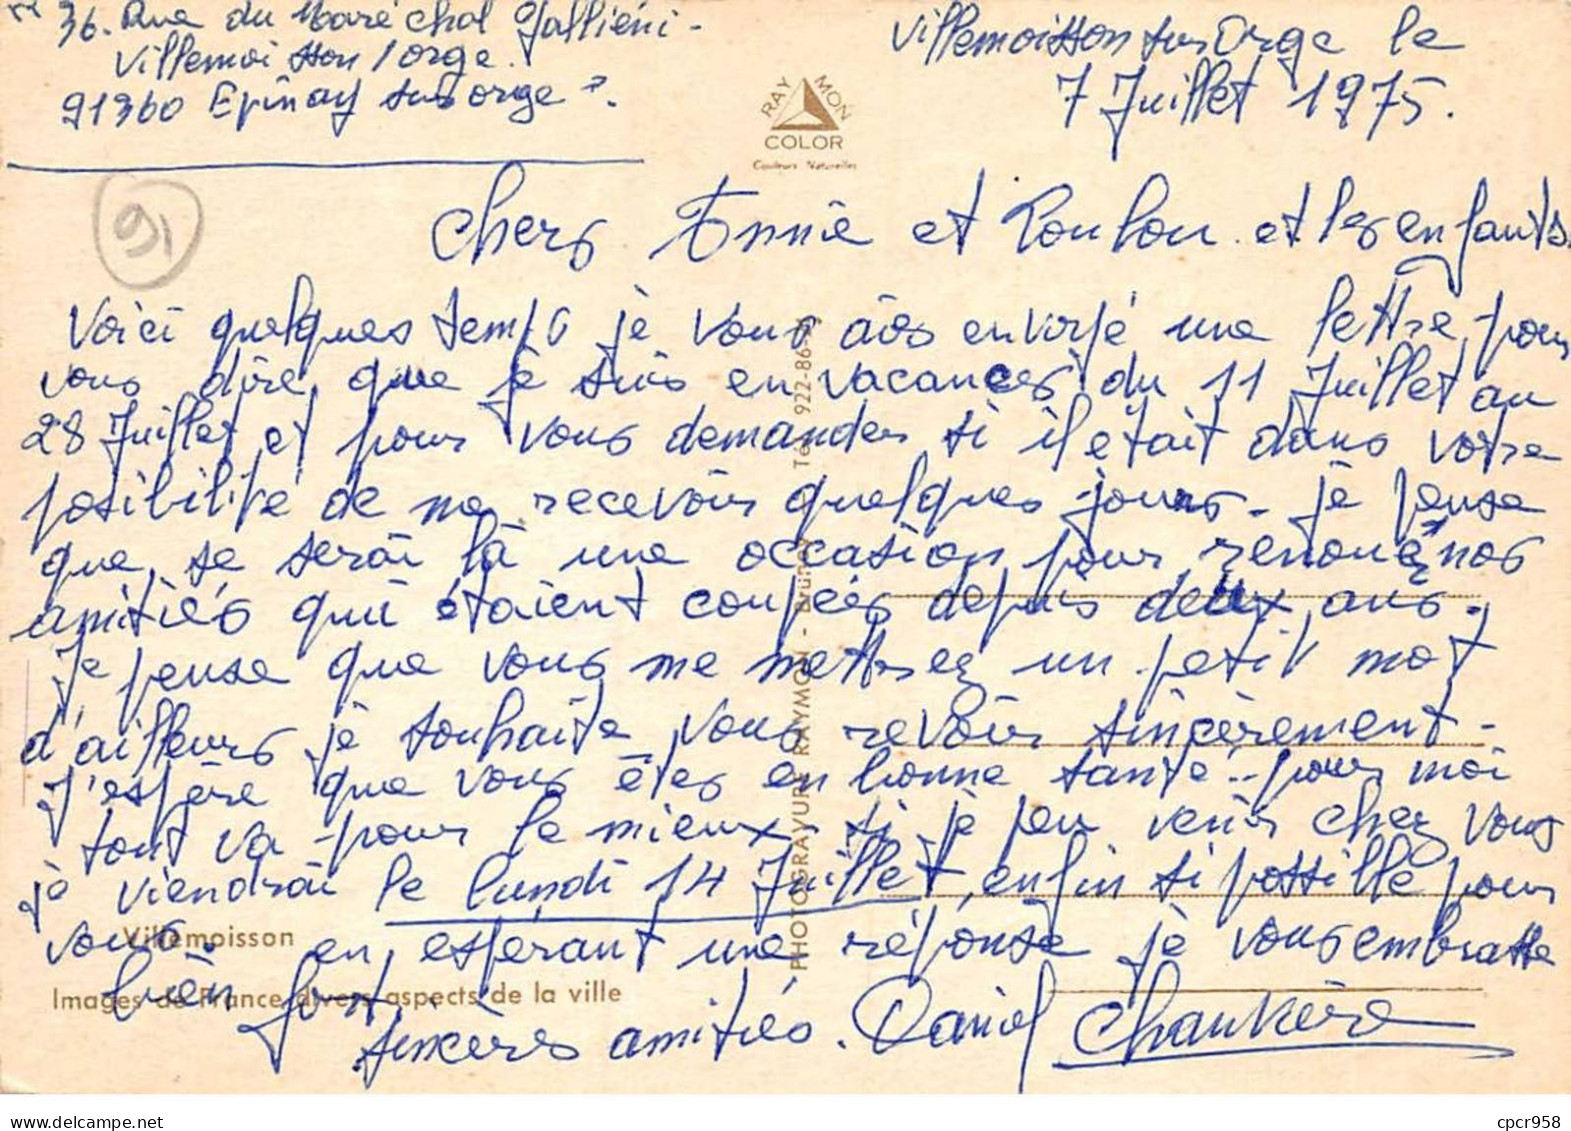 36. Rue du Maréchal Galliéni -
Villemoisson / orge.
91360 Epinay sur orge
Villemoisson sur Orge le
7 Juillet 1975.
RAYMON
COLOR
Couleurs Naturelles
91
Chers Annie et Loulou et les enfants
Voici quelques temps je vous ais envoyé une lettre pour
vous dire que je suis en vacances du 11 Juillet au
28 Juillet et pour vous demander si il était dans votre
posibilité de me recevoir quelques jours. je pense
que se serai là une occasion pour renouer nos
amitiés qui étaient coupées depuis deux ans.
Je pense que vous me mettrez un petit mot
d'ailleurs je souhaite vous revoir sincèrement -
J'espère que vous êtes en bonne santé - pour moi
tout va pour le mieux. si je peu venir chez vous
je viendrai le lundi 14 Juillet, enfin si possible pour
vous. en espérant une réponse je vous embrasse
bien fort.
sincères amitiés. Daniel
Villemoisson
Images de France divers aspects de la ville
PHOTOGRAVURE RAYMON - Brunoy - Tél. 922-86-
cpcr958